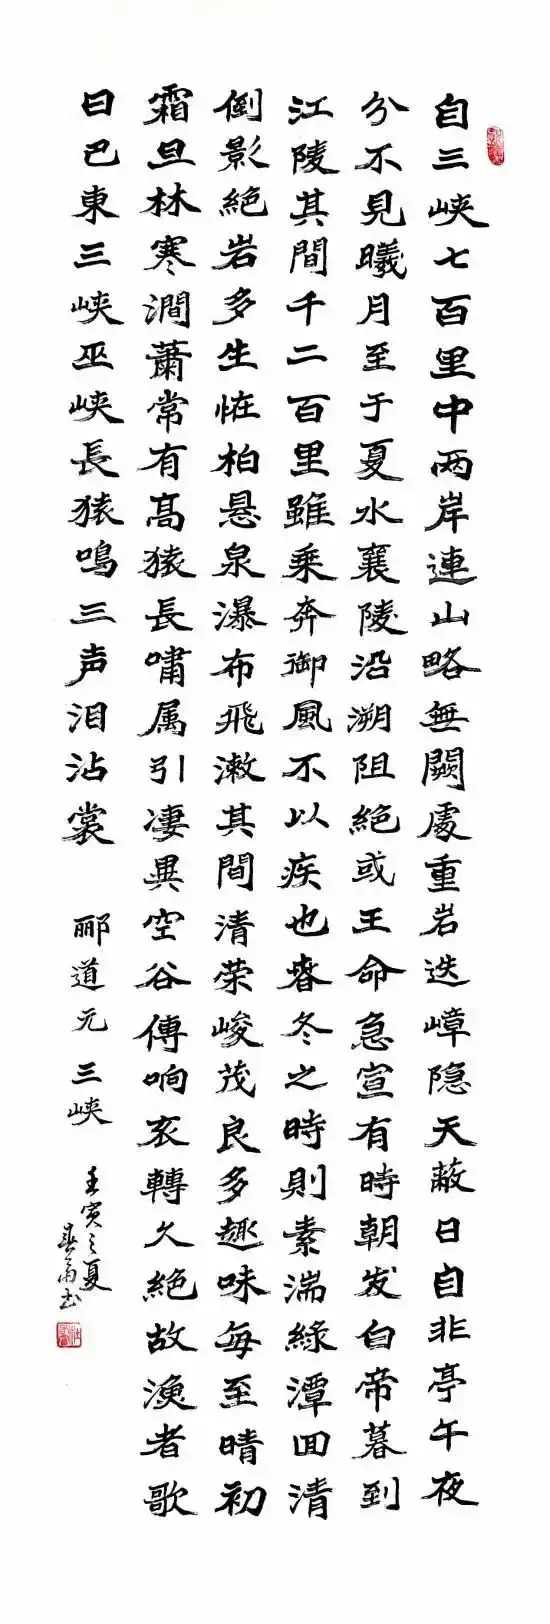 自三峡七百里中两岸連山略無闕處重岩迭嶂隐天蔽日自非亭午夜
分不見曦月至于夏水襄陵沿溯阻絶或王命急宣有時朝发白帝暮到
江陵其間千二百里雖乘奔御風不以疾也春冬之時則素湍綠潭囬清
倒影絶岩多生恠柏悬泉瀑布飛漱其間清荣峻茂良多趣味每至晴初
霜旦林寒澗蕭常有髙猿長嘯属引凄異空谷傳响哀轉久絶故漁者歌
曰巴東三峡巫峡長猿鳴三声泪沾裳 郦道元 三峡 壬寅之夏
书